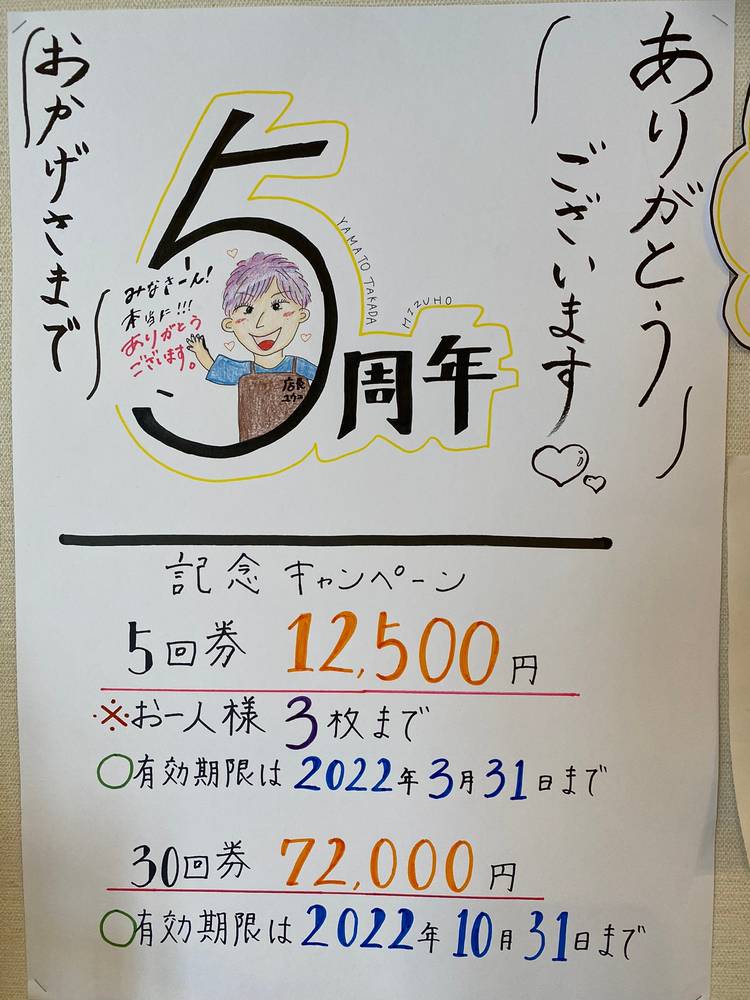 ありがとう
ございます
おかげさまで
5周年
YAMATO TAKADA
MIZUHO
みなさーん!
本当に!!!
ありがとう
ございます。
店長
ユウコ
記念キャンペーン
5回券 12,500円
※お一人様 3枚まで
○有効期限は 2022年3月31日まで
30回券 72,000円
○有効期限は 2022年10月31日まで